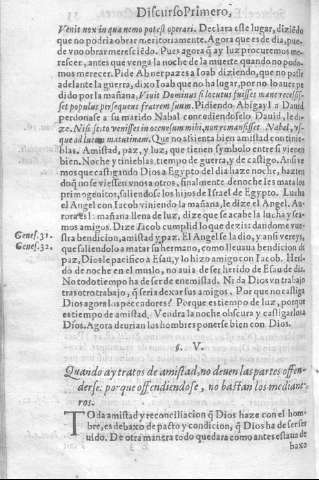 Discurso Primero,
Venit nox in qua nemo potest operari. Declara este lugar, diziẽdo
que no podria obrar meritoriamente. Agora que es de dia, pue-
de vno obrar mereciẽdo. Pues agora q̃ ay luz procuremos me-
rescer, antes que venga la noche de la muerte quando no podo-
mos merecer. Pide Abner pazes a Ioab diziendo, que no passe
adelante la guerra, dixo Ioab que no ha lugar, por no auer pe
dido por la mañana, Viuit Dominus si locutus fuisses mane recessis-
set populus persequens fratrem suum. Pidiendo Abigayl a Dauid
perdonasse a su marido Nabal concediendoselo Dauid, le di-
ze. Nisi cito venisses in occursum mihi, nunquid mansisset Nabal, vs-
que ad lucem matutinam. Que no assienta bien amistad con tinie-
blas. Amistad, paz, y luz, que tienen symbolo entre si vienen
bien. Noche y tinieblas, tiempo de guerra, y de castigo. Ansi ve
mos que castigando Dios a Egypto del dia haze noche, hazien
do q̃ no se viessen vnos a otros, finalmente de noche les mata los
primogenitos, saliendo los hijos de Israel de Egypto. Lucha
el Angel con Iacob viniendo la mañana, le dize el Angel. Au-
rora est: mañana llena de luz, dize que se acabe la lucha y sea-
mos amigos. Dize Iacob cumplid lo que dezis dandome vue-
stra bendicion, amistad y paz. El Angel se la dio, y ansi vereys,
que saliendolo a matar su hermano, como lleuaua bendicion de
paz, Dios le pacifico a Esau, y lo hizo amigo con Iacob. Heri-
do de noche en el muslo, no auia de ser herido de Esau de dia.
No todo tiempo ha de ser de enemistad. Ni da Dios vn trabajo
tras otro trabajo, q̃ seria dexar sus amigos. Por que no castiga
Dios agora los peccadores? Porque es tiempo de luz, porque
es tiempo de amistad. Vendra la noche obscura y castigarlos a
Dios. Agora deurian los hombres ponerse bien con Dios.
Genes. 31.
Genes. 32.
§. V.
Quando ay tratos de amistad, no deuen las partes offen-
derse: porque offendiendose, no bastan los mediane-
ros.
TOda amistad y reconciliacion q̃ Dios haze con el hom-
bre, es debaxo de pacto y condicion, q̃ Dios ha de ser ser
uido. De otra manera todo quedara como antes estaua de
baxo